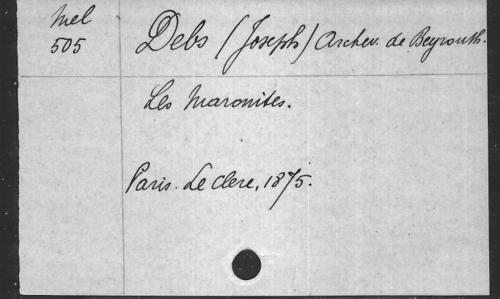 Mel
505
Debs (Joseph) Archev. de Beyrouth.
Les Maronites.
Paris. Le Clere, 1875.